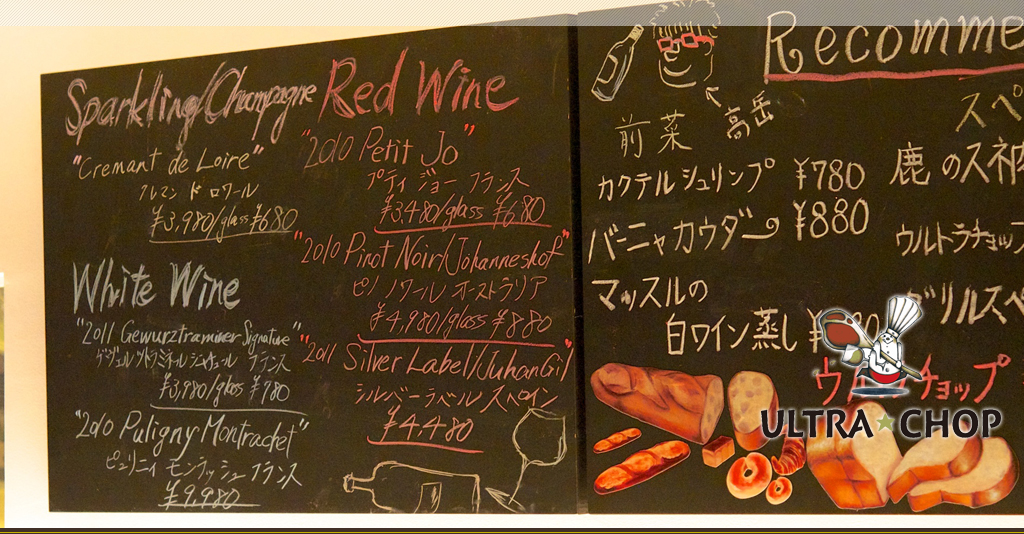 Sparkling/Champagne
"Cremant de Loire"
クレマン ド ロワール
¥3,980/glass ¥680
White Wine
"2011 Gewurztraminer Signature"
¥3,980/glass ¥780
"2010 Puligny Montrachet"
ピュリニィ モンラッシュ フランス
¥9,980
Red Wine
"2010 Petit Jo"
プティ ジョー フランス
¥3,480/glass ¥680
"2010 Pinot Noir/Johanneshof"
ピノ ノワール オーストラリア
¥4,980/glass ¥880
"2011 Silver Label/JuhanGil"
シルバーラベル スペイン
¥4,480
Recomme
前菜
高岳
カクテルシュリンプ ¥780
バーニャカウダー ¥880
マッスルの
白ワイン蒸し
スペ
鹿のスネ肉
ウルトラチョップ
グリルスペ
ウルトラチョップ
ULTRA★CHOP